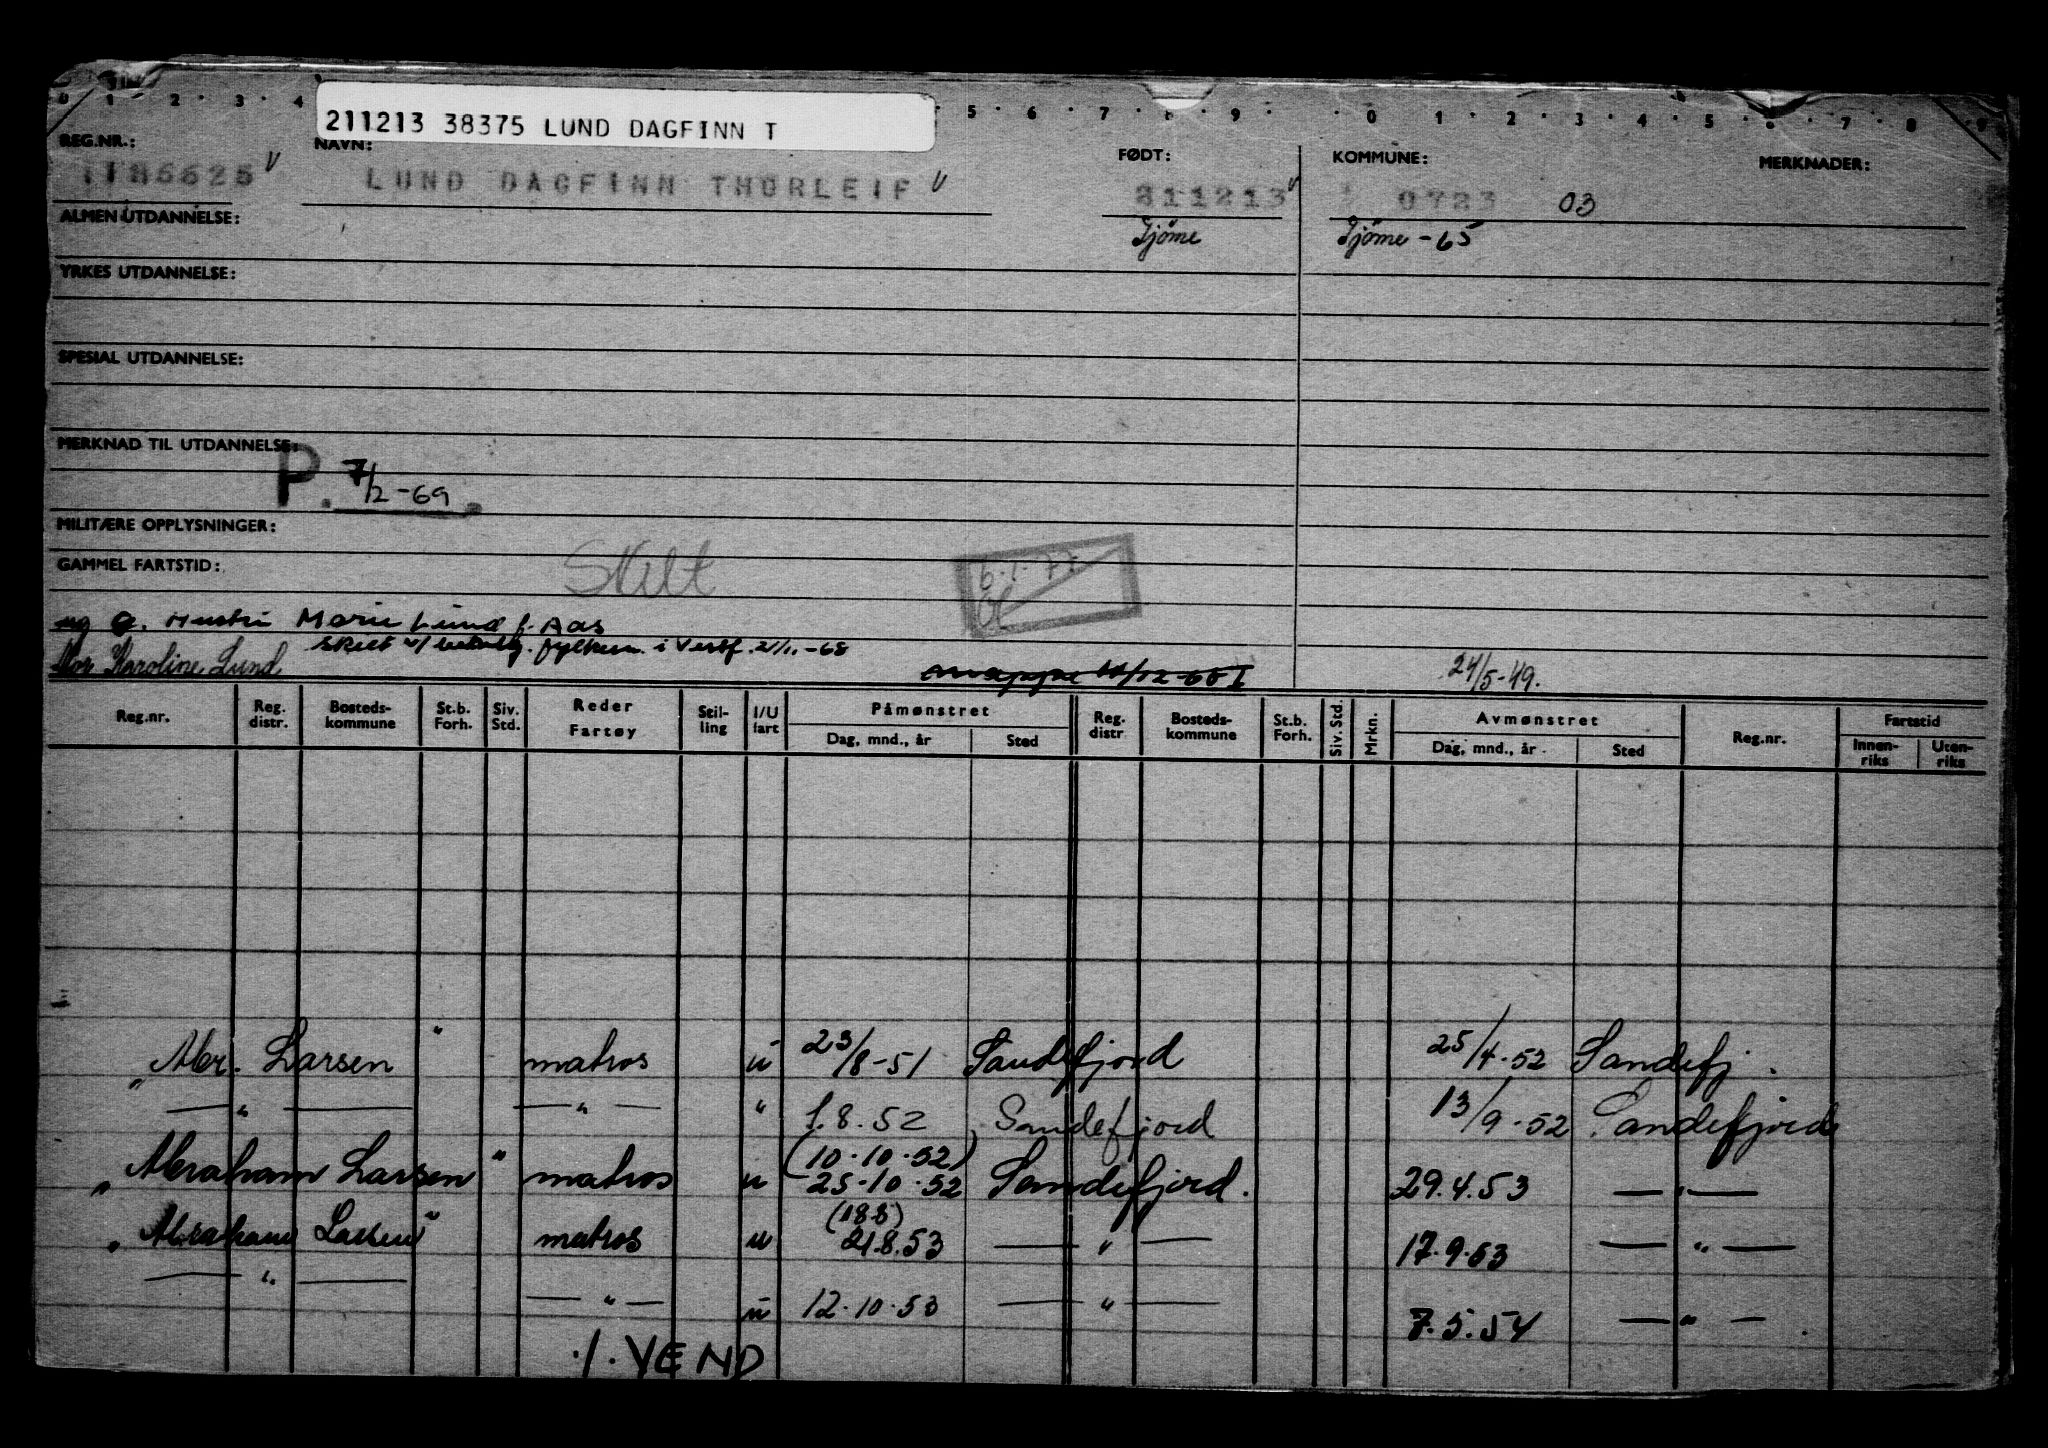 0 1 2 3 4 5 6 7 8 9 0 1 2 3 4 5 6 7 8 9
211213 38375 LUND DAGFINN T
REG.NR.: NAVN: FØDT: KOMMUNE: MERKNADER:
LUND DAGFINN THORLEIF 211213 0723 03
ALMEN UTDANNELSE: Tjöme Tjöme - 65
YRKES UTDANNELSE:
SPESIAL UTDANNELSE:
MERKNAD TIL UTDANNELSE:
P. 7/2-69
MILITÆRE OPPLYSNINGER:
GAMMEL FARTSTID: Skilt 6.1.77
ug g. Hustru Marie Lund f. Aas
skilt v/ fylkesm. i Vestf. 21/11-68
Mor Karoline Lund 24/5-49.
Reg.nr. Reg. distr. Bosteds-kommune St.b. Forh. Siv. Std. Reder Fartøy Stil-ling I/U fart Påmønstret Dag, mnd., år Sted Reg. distr. Bosteds-kommune St.b. Forh. Siv. Std. Mrkn. Avmønstret Dag, mnd., år Sted Reg.nr. Fartstid Innen-riks Uten-riks
„ Abr. Larsen " matros u 23/8-51 Sandefjord 25/4-52 Sandefj.
— " — — " — " 1.8.52 Sandefjord 13/9-52 Sandefjord
(10.10.52)
„ Abraham Larsen " matros u 25.10.52 Sandefjord. 29.4.53 — " —
(18.8)
„ Abraham Larsen " matros u 21.8.53 — " — 17.9.53 — " —
— " — — " — u 12.10.53 — " — 7.5.54 — " —
./. VEND